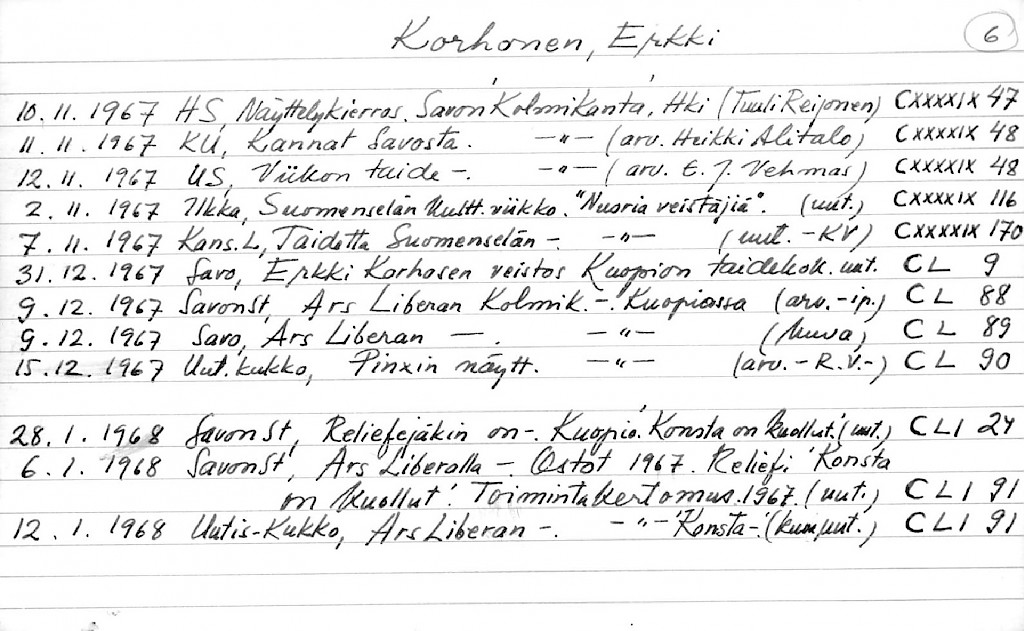 Korhonen, Erkki 6
10.11.1967 HS, Näyttelykierros, Savon 'Kolmikanta', Hki (Tuuli Reijonen) CXXXXIX 47
11.11.1967 KU, Kannat Savosta. —"— (arv. Heikki Alitalo) CXXXXIX 48
12.11.1967 US, Viikon taide -. —"— (arv. E. J. Vehmas) CXXXXIX 48
2.11.1967 Ilkka, Suomenselän kultt.viikko. "Nuoria veistäjiä". (uut.) CXXXXIX 116
7.11.1967 Kans.L, Taidetta Suomenselän -. —"— (uut. -KV) CXXXXIX 170
31.12.1967 Savo, Erkki Korhosen veistos Kuopion taidekok. uut. CL 9
9.12.1967 SavonSt, Ars Liberan Kolmik. -. Kuopiossa (arv. -ip.) CL 88
9.12.1967 Savo, Ars Liberan —. —"— (kuva) CL 89
15.12.1967 Uut.kukko, Pinxin näytt. —"— (arv. -R.V.-) CL 90
28.1.1968 SavonSt, Reliefejäkin on -. Kuopio. 'Konsta on kuollut.' (uut.) CLI 24
6.1.1968 SavonSt, Ars Liberalla -. Ostot 1967. Reliefi 'Konsta
on kuollut'. Toimintakertomus.1967. (uut.) CLI 91
12.1.1968 Uutis-Kukko, Ars Liberan -. —"— 'Konsta -.' (kuv, uut.) CLI 91